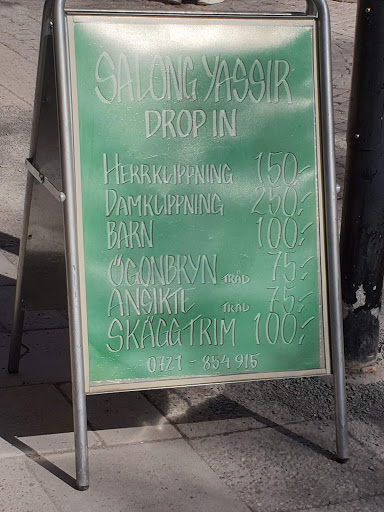 SALONG YASSIR
DROP IN
HERRKLIPPNING 150:-
DAMKLIPPNING 250:-
BARN 100:-
ÖGONBRYN TRÅD 75:-
ANSIKTE TRÅD 75:-
SKÄGGTRIM 100:-
0721-854 915